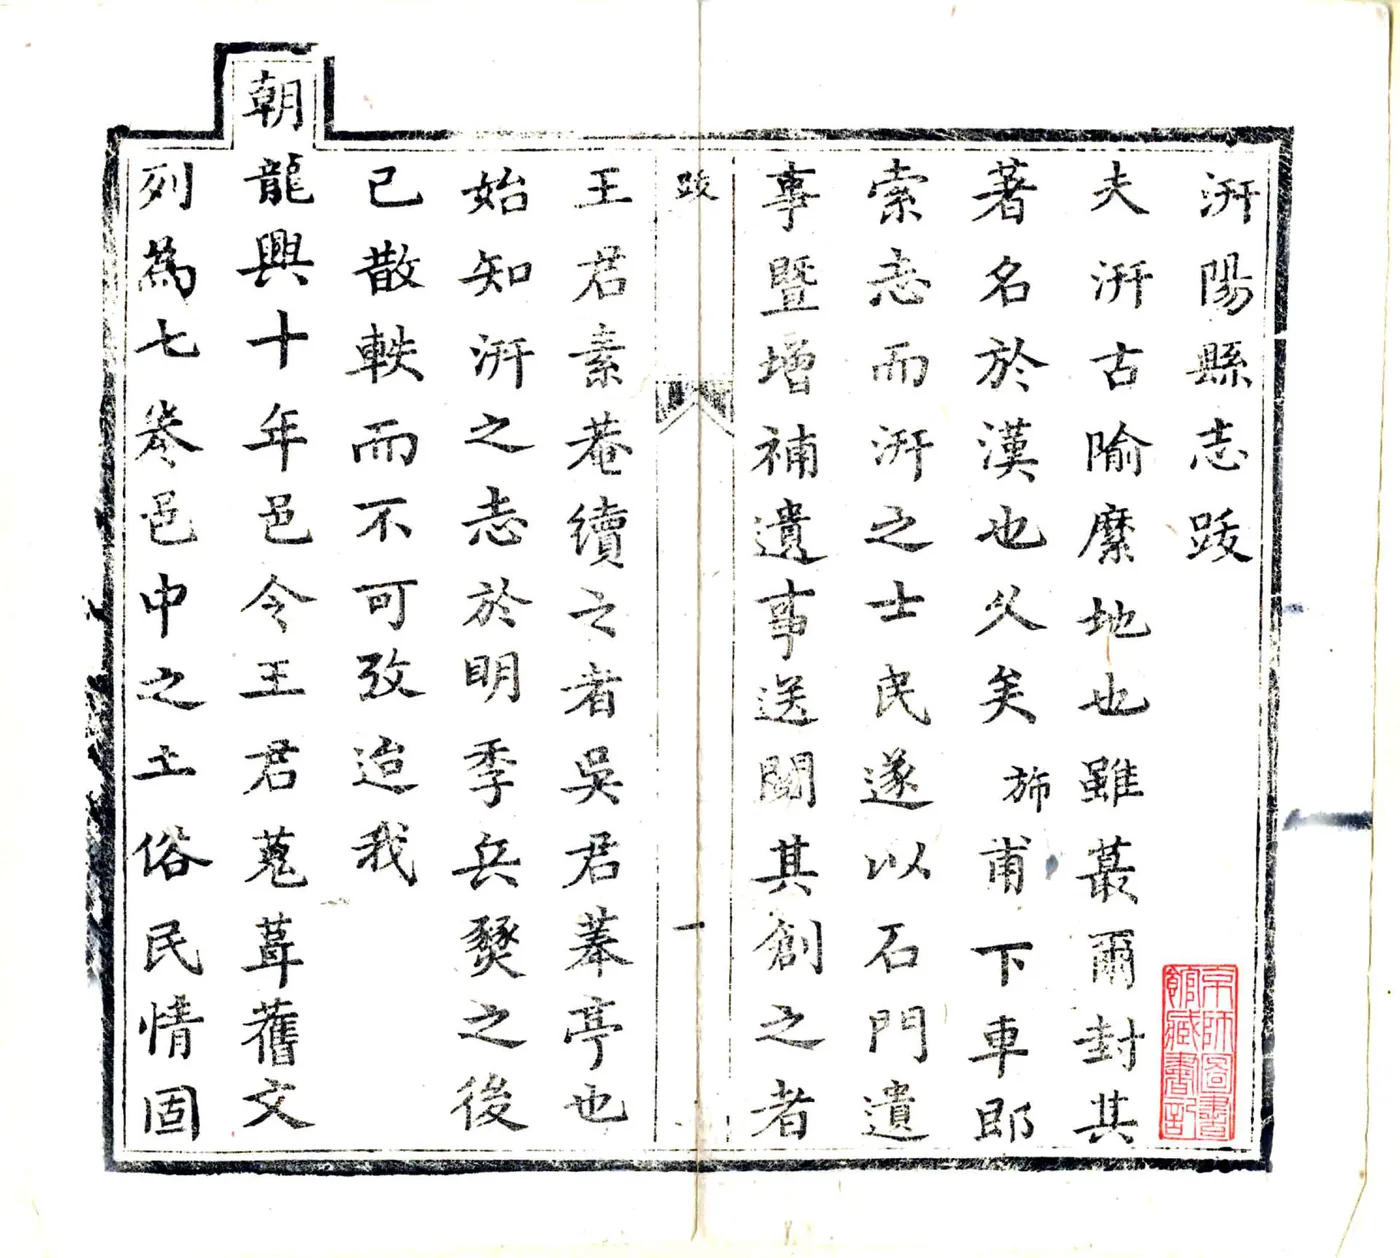 汧陽縣志跋
夫汧古隃麋地也雖蕞爾封其
著名於漢也久矣斾甫下車即
索志而汧之士民遂以石門遺
事暨增補遺事送閱其創之者
跋
一
王君素菴續之者吳君菶亭也
始知汧之志於明季兵燹之後
已散軼而不可攷迨我
朝龍興十年邑令王君蒐葺舊文
列為七卷邑中之土俗民情固
京師圖書
館藏書記